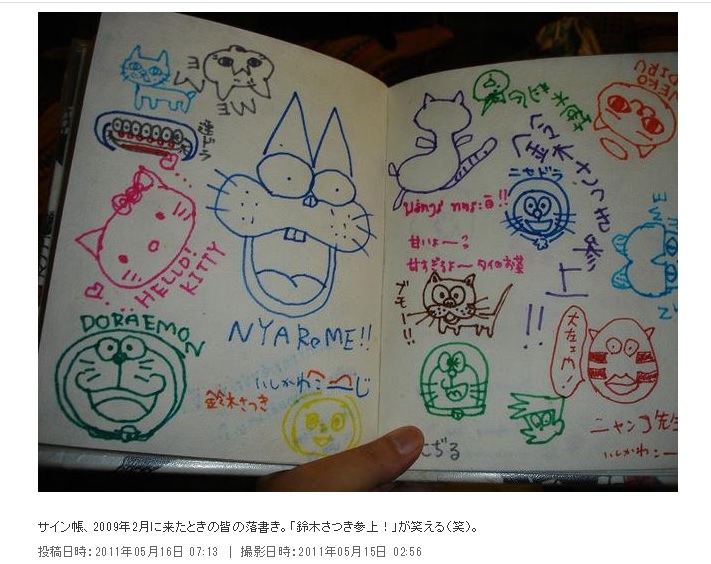 ME
ME
逢ドラ
HELLO!
KITTY
NYAROME!!
DORAEMON
いしかわこーじ
鈴木さつき
ニセドラ
鈴木さつき参上!!
ME
甘いよ〜?
甘すぎるよ〜タイのお菓
ブモー!!
大佐ェm!
ニャンコ先生
いしかわこー
こぢる
サイン帳、2009年2月に来たときの皆の落書き。「鈴木さつき参上!」が笑える(笑)。
投稿日時:2011年05月16日 07:13 | 撮影日時:2011年05月15日 02:56